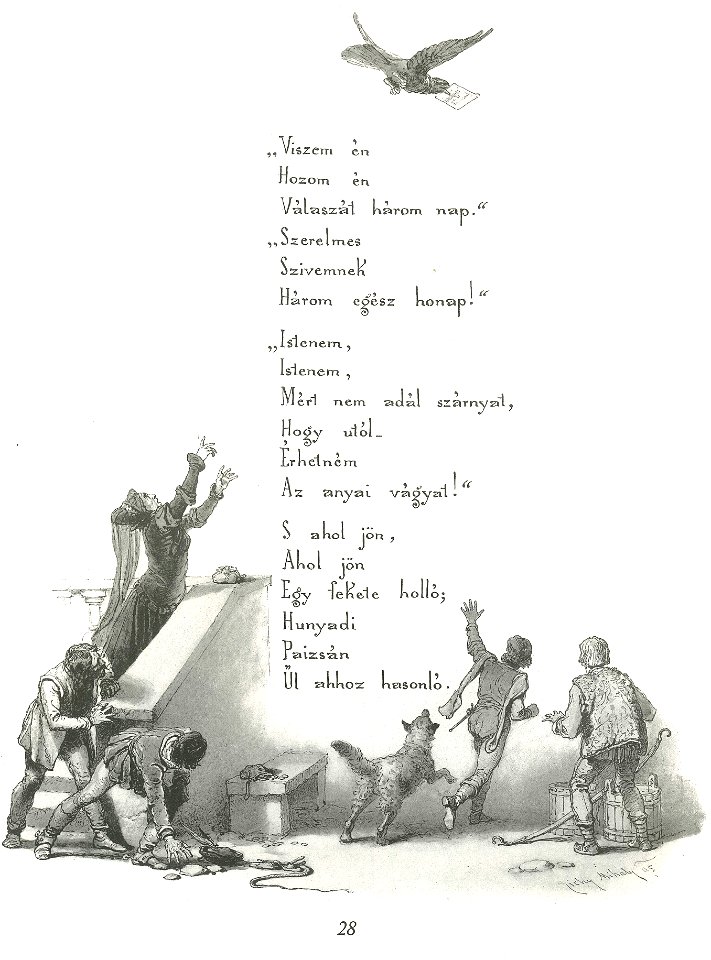 „Viszem én
Hozom én
Válaszát három nap.“
„Szerelmes
Szivemnek
Három egész honap!“
„Istenem,
Istenem,
Mért nem adál szárnyat,
Hogy utól-
Érhetném
Az anyai vágyat!“
S ahol jön,
Ahol jön
Egy fekete holló;
Hunyadi
Paizsán
Űl ahhoz hasonló.
Zichy Mihály
28